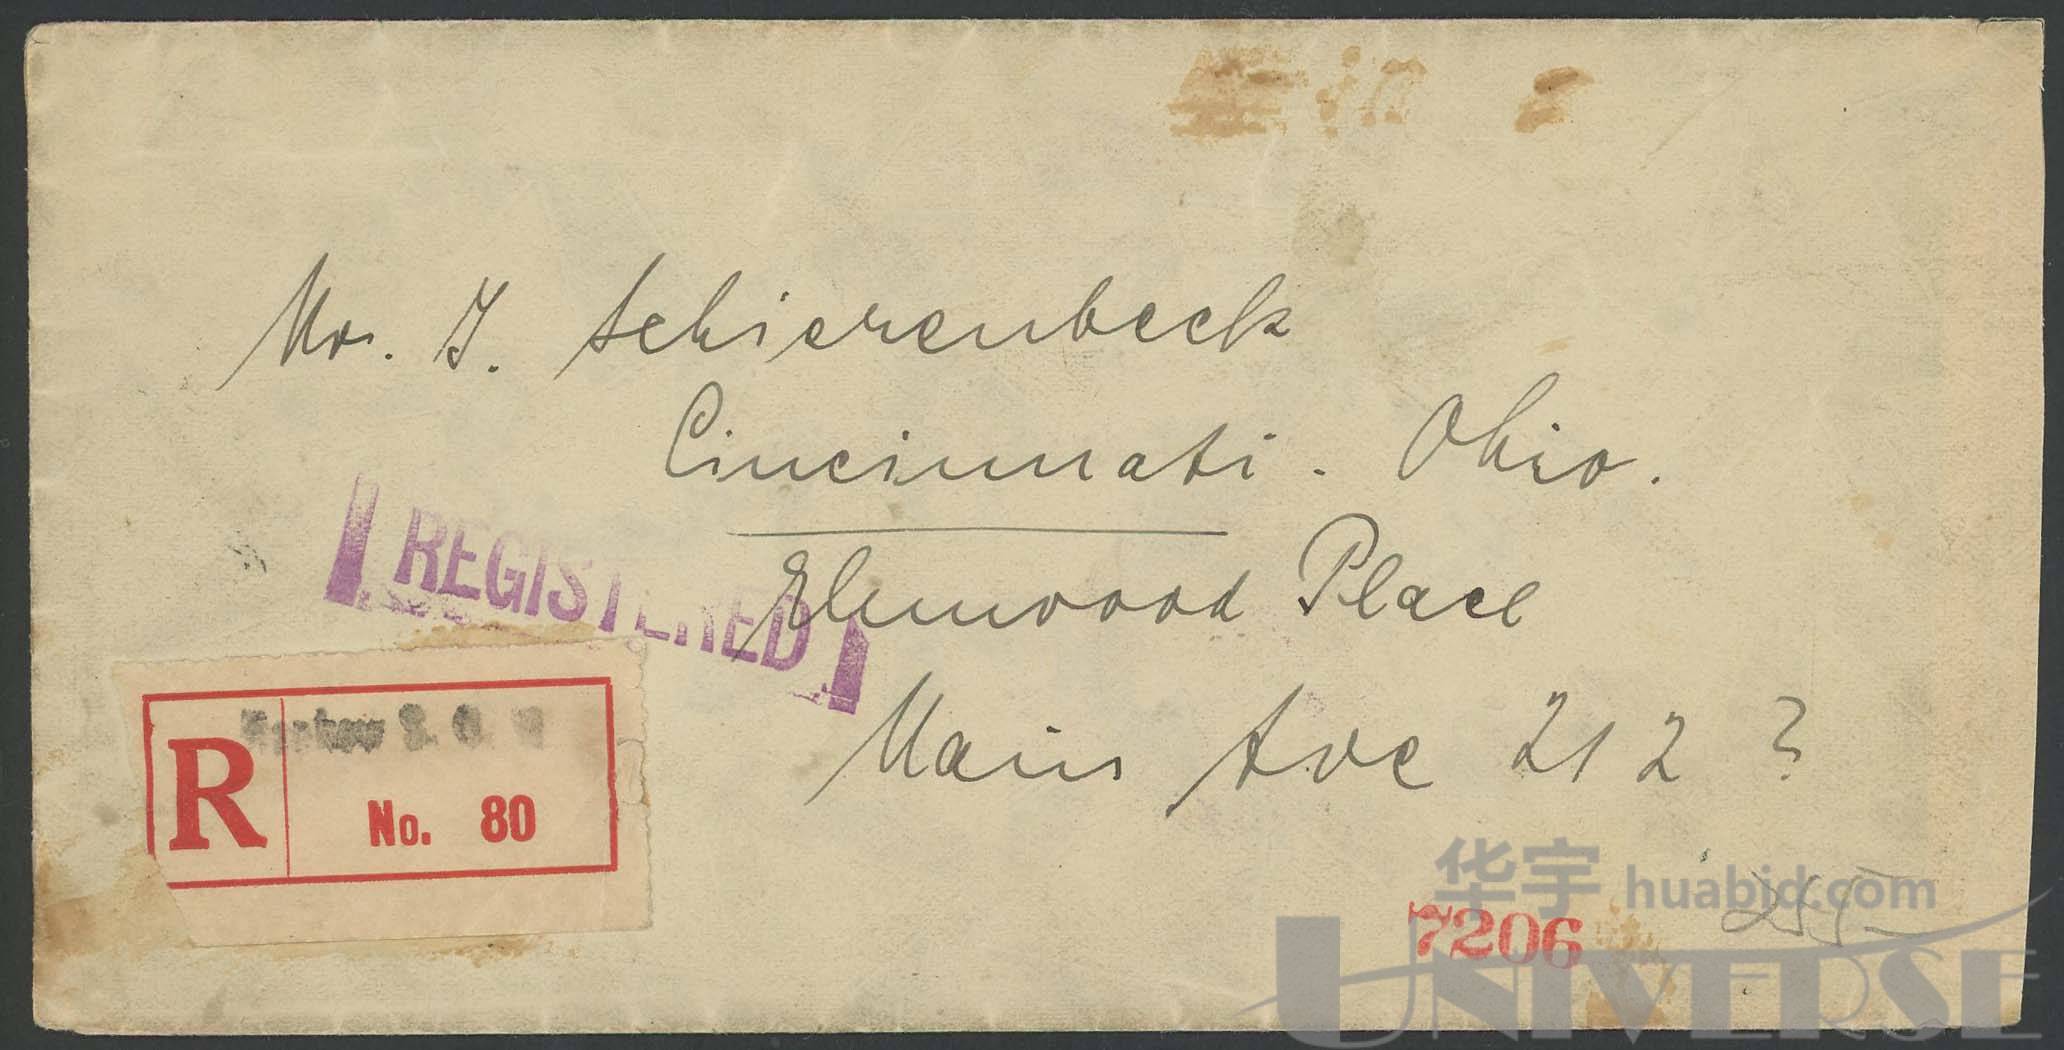 Mr. J. Schierenbeck
Cincinnati. Ohio.
Elmwood Place
Main Ave 212 ?
REGISTERED
R
No. 80
7206
华宇 huabid.com
UNIVERSE